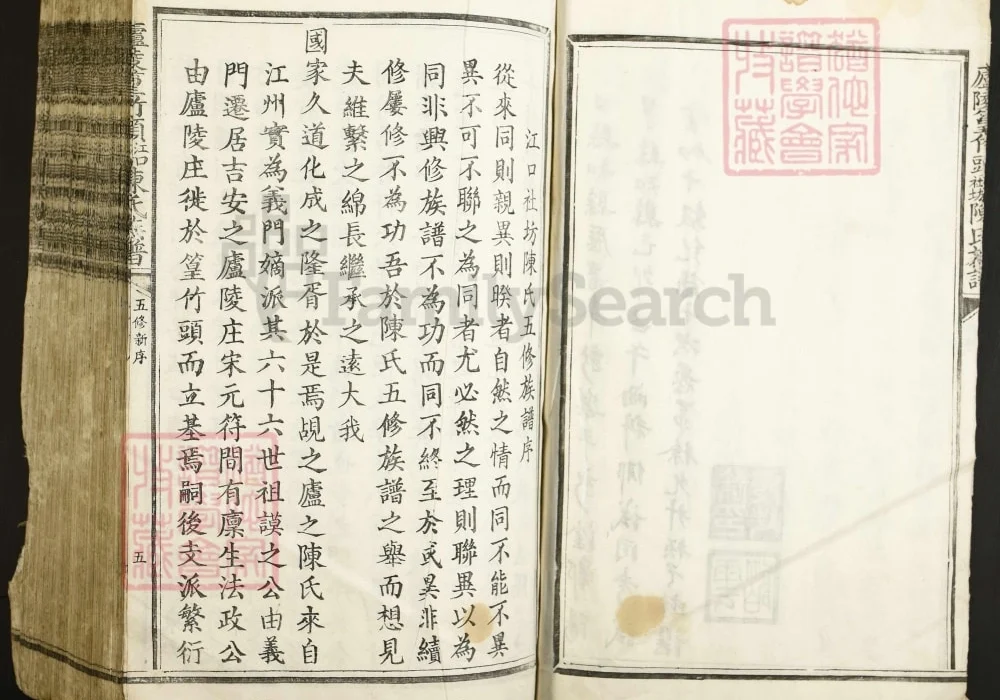 廬陵篁竹頭社坊陳氏族譜
江口社坊陳氏五修族譜序
從來同則親異則睽者自然之情而同不能不異
異不可不聯之為同者尤必然之理則聯異以為
同非興修族譜不為功而同不終至於或異非續
修屢修不為功吾於陳氏五修族譜之舉而想見
夫維繫之綿長繼承之遠大我
國家久道化成之隆胥於是焉覘之廬之陳氏來自
江州實為義門嫡派其六十六世祖謨之公由義
門遷居吉安之廬陵庄宋元符間有廩生法政公
由廬陵庄徙於篁竹頭而立基焉嗣後支派繁衍
五修新序
五
FamilySearch